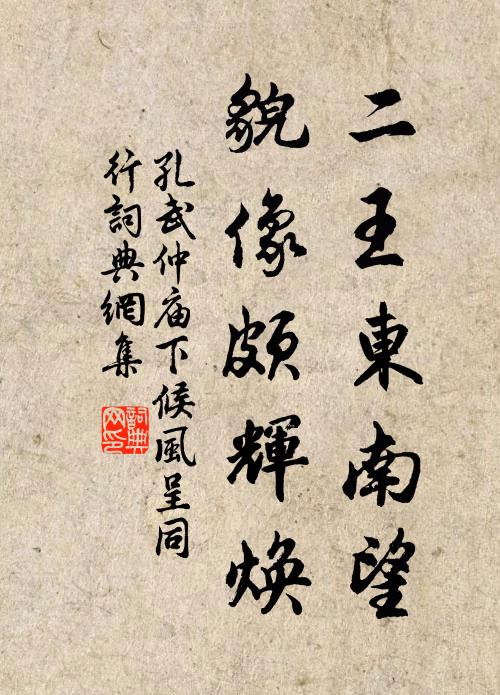 二王東南望
貌像頗輝煥
孔武仲庙下候風呈同
行詞典網集
詞典
网印